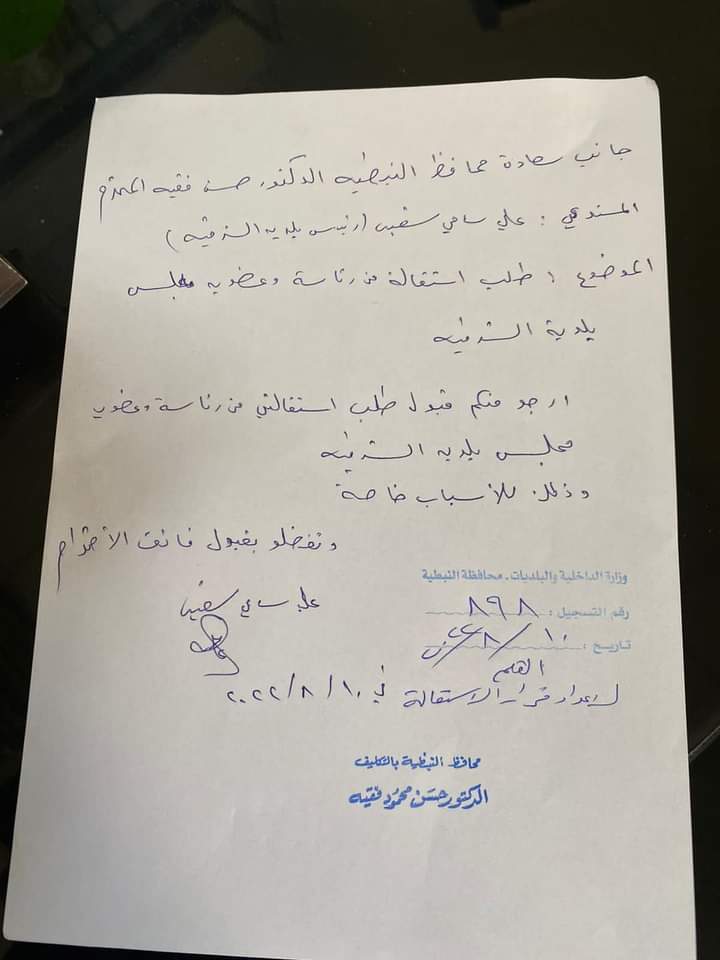 جانب سعادة محافظ النبطيه الدكتور حسن فقيه المحترم
المستدعي : علي سامي شعيب (رئيس بلديه الشرقيه)
الموضوع : طلب استقالة من رئاسة وعضويه مجلس
بلدية الشرقيه
ارجو منكم قبول طلب استقالتي من رئاسة وعضوية
مجلس بلديه الشرقيه
وذلك للأسباب خاصة
وتفضلو بقبول فائق الاحترام
وزارة الداخلية والبلديات ـ محافظة النبطية
علي سامي شعيب
رقم التسجيل : ٨٩٨
تاريخ : ١٠/٨/
القلم
لإعداد قرار الاستقالة في ١٠/٨/٢٠٢٢
محافظ النبطية بالتكليف
الدكتور حسن محمود فقيه